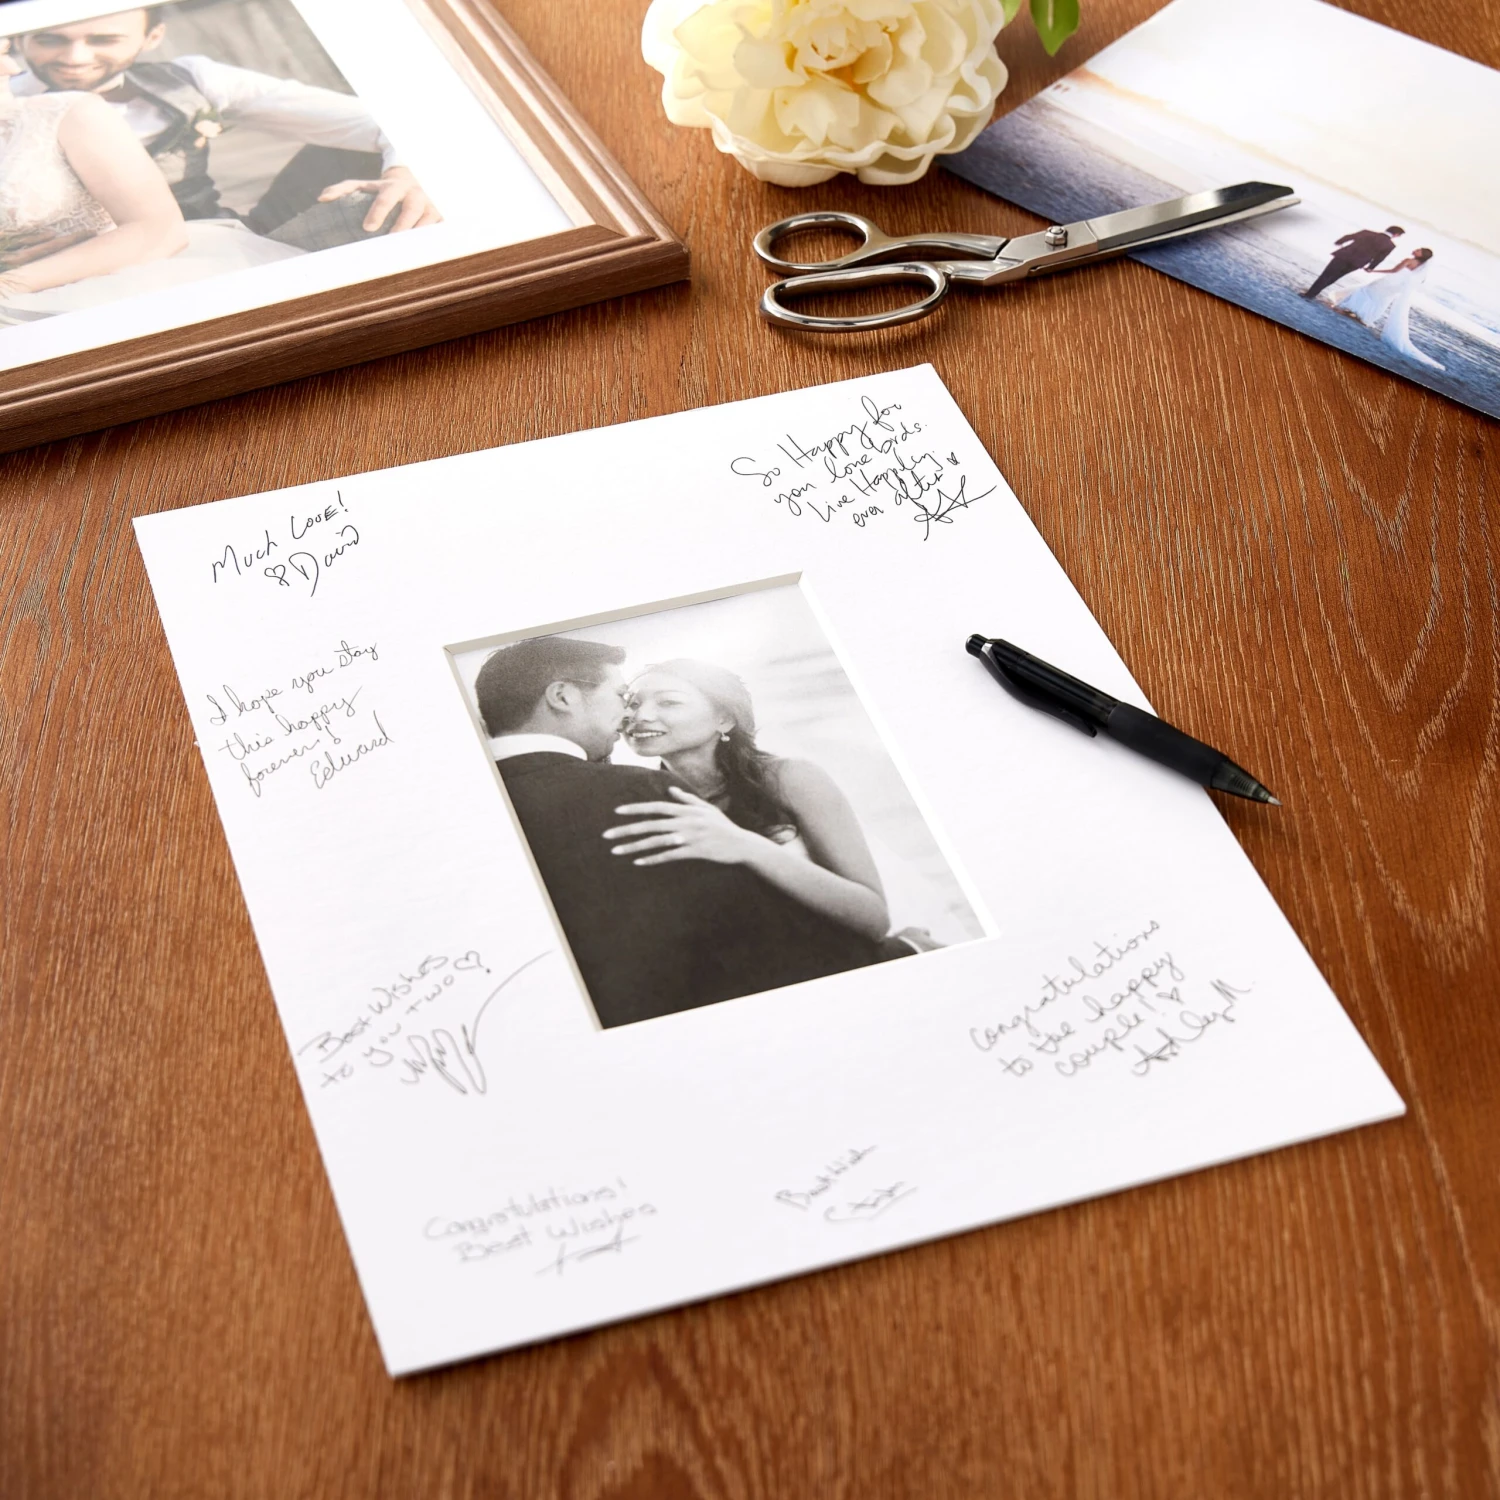 Much Love!
♡ David
So Happy for
you love birds.
Live Happley
ever after ♡
I hope you stay
this happy
forever!
Edward
Best Wishes
to you two ♡!
congratulations
to the happy
couple! ♡
Ashley M.
Congratulations!
Best Wishes
Best Wish